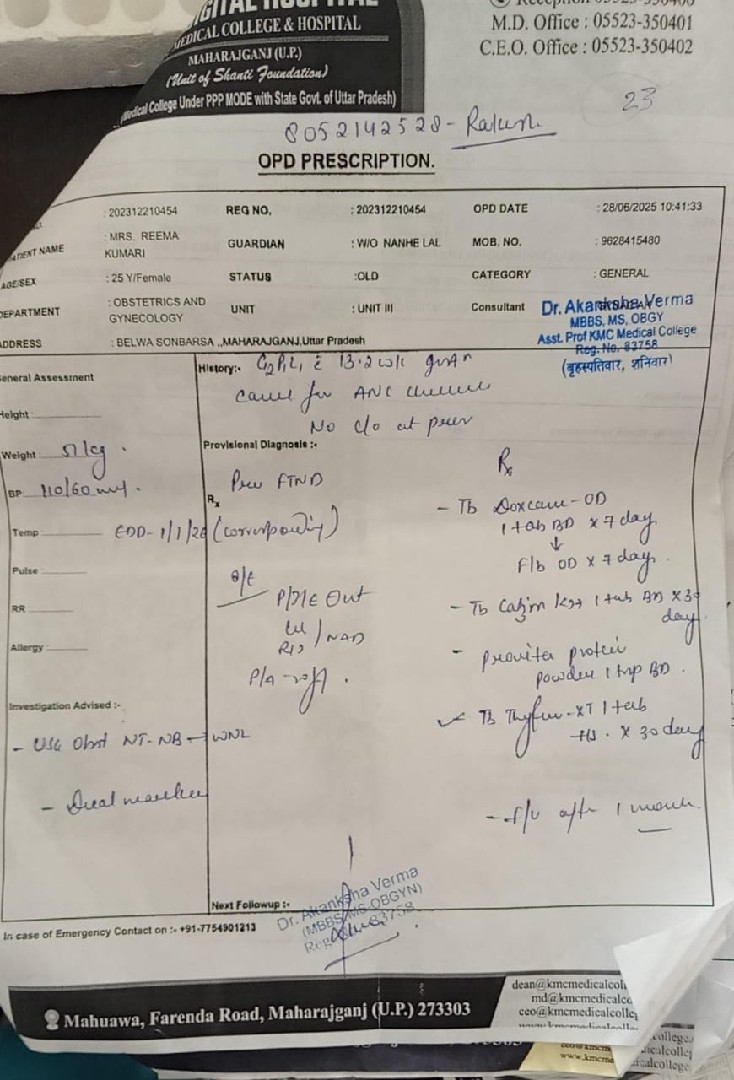 MEDICAL COLLEGE & HOSPITAL
MAHARAJGANJ (U.P.)
(Unit of Shanti Foundation)
(Medical College Under PPP MODE with State Govt. of Uttar Pradesh)
M.D. Office : 05523-350401
C.E.O. Office : 05523-350402
23
8052142528-
OPD PRESCRIPTION.
: 202312210454 REG NO. : 202312210454 OPD DATE : 28/06/2025 10:41:33
: MRS. REEMA KUMARI GUARDIAN : W/O NANHE LAL MOB. NO. : 9628415480
AGE/SEX : 25 Y/Female STATUS :OLD CATEGORY : GENERAL
DEPARTMENT : OBSTETRICS AND GYNECOLOGY UNIT : UNIT III Consultant
Dr. Akanksha Verma
MBBS, MS, OBGY
Asst. Prof KMC Medical College
Reg. No. 83758
(बृहस्पतिवार, शनिवार)
ADDRESS : BELWA SONBARSA ,,MAHARAJGANJ,Uttar Pradesh
General Assessment
Height
Weight 51 kg
BP 110/60
Temp
Pulse
RR
Allergy:
Investigation Advised :-
- USG Obst NT-NB → WNL
- Dual marker
History:- 13.2 wk
came for ANC
No c/o at
Provisional Diagnosis :-
Prev FTND
Rx
EDD- 1/1/26
O/E
P/A - soft.
Rx
- Tb Doxcare-OD
1 tab BD x 7 day
↓
F/b OD x 7 days.
- Tb 1 tab BD x 30 day
- protein
powder BD.
- Tb 1 tab
HS. x 30 day
- F/U after 1 month.
Next Followup :-
Dr. Akanksha Verma
(MBBS, MS-OBGYN)
Reg. 83758
In case of Emergency Contact on :- +91-7754901213
Mahuawa, Farenda Road, Maharajganj (U.P.) 273303
dean@kmcmedicalcoll
md@kmcmedicalco
ceo@kmcmedicalcolleg